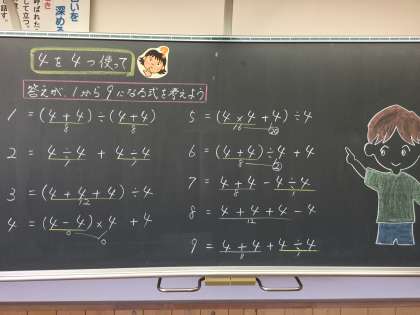 いを
深める
き
呼ばれた
して立つ。
話す。
4を4つ使って
答えが、1から9になる式を考えよう
1=(4+4)÷(4+4)
8
8
2=4÷4+4÷4
1
1
3=(4+4+4)÷4
12
4=(4-4)×4+4
0
0
5=(4×4+4)÷4
16
20
6=(4+4)÷4+4
8
2
7=4+4-4÷4
8
1
8=4+4+4-4
12
9=4+4+4÷4
8
1